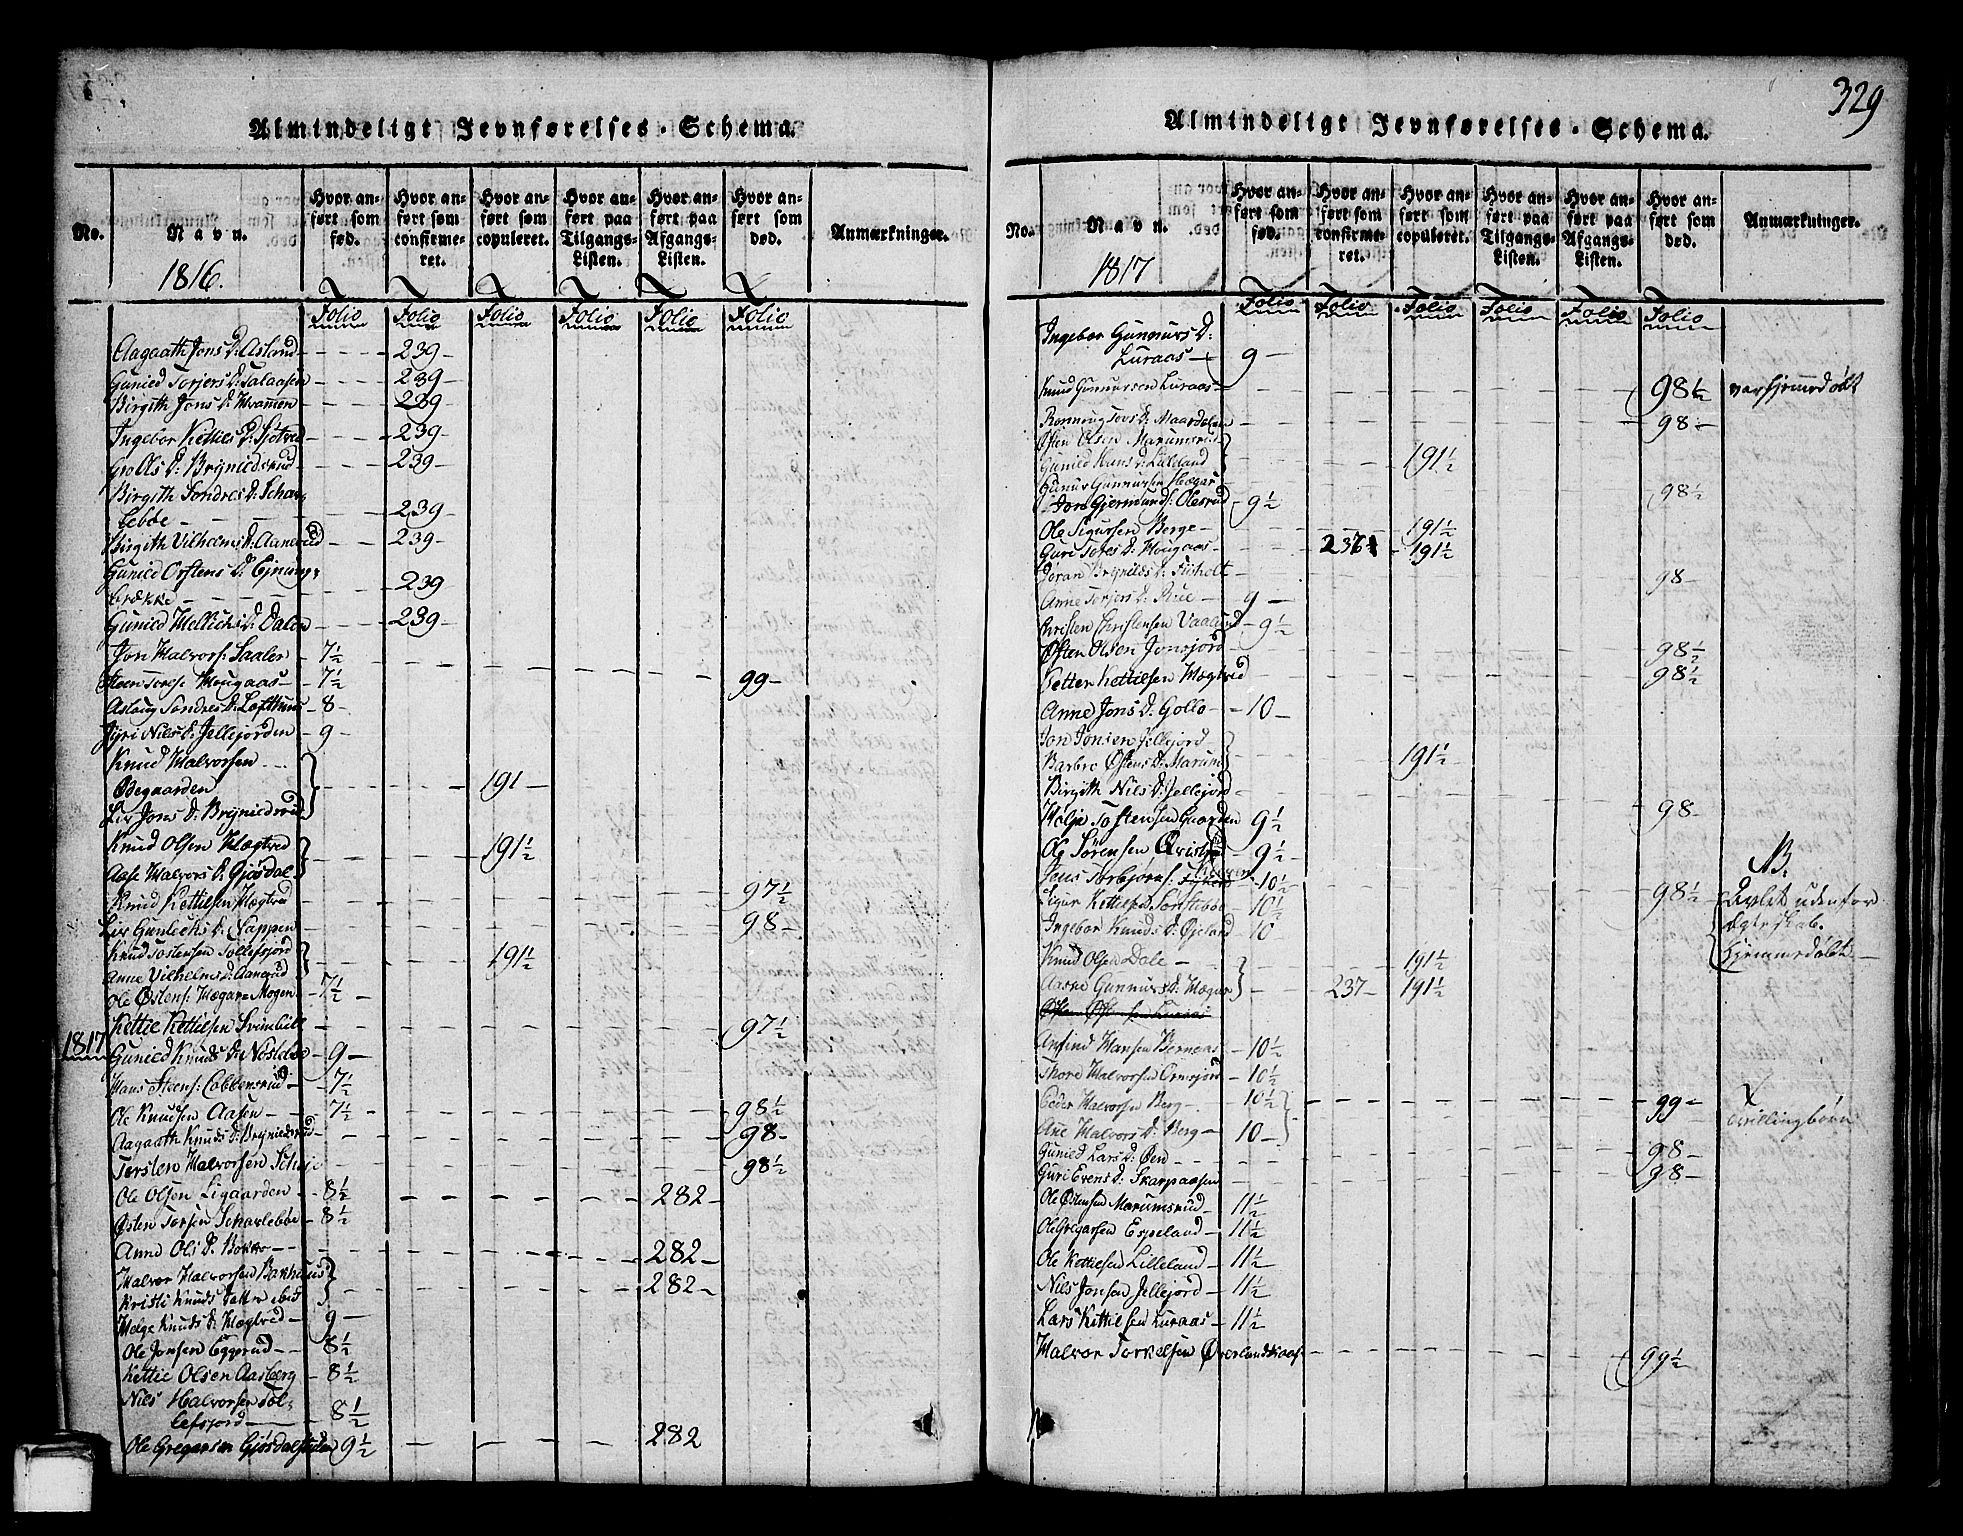 Almindeligt Jevnførelses-Schema.
No.
Navn.
1816.
Hvor anført som fød.
Hvor anført som confirmeret.
Hvor anført som copuleret.
Hvor anført paa Tilgangs-Listen.
Hvor anført paa Afgangs-Listen.
Hvor anført som død.
Anmærkninger.
Folio Folio Folio Folio Folio Folio
Aagaath Jons D: Aasland 239
Gunied Torjers D: Talaasen 239
Birgith Jons D: Moamen 239
Ingebor Kettils D: 239
Gro Ols D: Brynieldsrud 239
Birgith Sondres D: Schar
lebøe 239
Birgith Vilhelms D: Aanerud 239
Gunied Orstens D: Ejnung
brække 239
Gunied Mellichs D: Dalen 239
Jon Halvors: Saaler 7½
Steen Tores: Hougaas 7½ 99
Aslaug Sondres D: Lofthuus 8
Jyri Nils D: Jellejorden 9
Knud Halvorsen
Ødegaarden 191
Liv Jons D: Brynieldsrud
Knud Olsen Hægtved 191½
Aase Halvors D: Gjøsdal
Knud Kettilsen Hægtved 97½
Liv Gunlechs D: Nappen 98
Knud Tostensen Tollefsjord 191½
Anne Vilhelms D: Aanerud
Ole Østens: Hægar Mogen 7½
Kettil Kettilsen Svinbøle 97½
1817 Gunied Knuds D: Nøsteboe 9
Hans Steens: Cobbensrud 7½
Ole Knudsen Aasen 7½ 98½
Aagaath Knuds D: Brynieldsrud 98
Torsten Halvorsen 98½
Ole Olsen Ligaarden 8½ 282
Østen Torsen Scharlebøe 8½
Anne Ols D: Bokko 282
Halvor Halvorsen Bakhuus 282
Kristi Knuds Datter ibid
Helge Knuds D: Hægtved 9
Ole Jonsen Eggerud 8½
Kettil Olsen Aasberg 8½
Nils Halvorsen Tol-
lefsjord 8½
Ole Gregarsen Gjøsdalstølen 9½ 282
329
Almindeligt Jevnførelses-Schema.
No.
Navn.
1817
Hvor anført som fød.
Hvor anført som confirmeret.
Hvor anført som copuleret.
Hvor anført paa Tilgangs-Listen.
Hvor anført paa Afgangs-Listen.
Hvor anført som død.
Anmærkninger.
Folio Folio Folio Folio Folio Folio
Ingebor Gunnurs D:
Luraas 9
Knud Gunnursen Luraas 98½ var hjemmedøbt
Ronnoug Tovs D: Maardalen 98
Østen Olsen Marumsrud
Gunied Hans D: Lilleland 191½
Gunur Gunnursen Hægar 98½
Jon Gjermunds: Olesrud 9½
Ole Sigursen Berge 191½
Guri Tores D: Hougaas 237½ 191½
Jøran Brynilds D: Fisholt 98
Anne Torjers D: Rue 9
Christen Christensen Vaalund 9½
Østen Olsen Jonsjord 98½
Petter Kettilsen Hægtved 98½
Anne Jons D: Gollo 10
Jon Jonsen Jellejord
Barbro Østens D: Marum 191½
Birgith Nils D: Jellejord 98
Helje Tostensen Gaarden 9½
Ole Sørensen Qvist 9½
Jens Torbjørns: 10½ 98½
Sigur Kettilsen Sønstebøe 10½
Ingebor Knuds D: Øjeland 10
NB.
Avlet udenfor
Ægteskab.
Hjemmedøbt.
Knud Olsen Dale 191½
Aasne Gunnurs D: Hægar 237 191½
Østen Østensen Luraas
Anfind Hansen Bernaas 10½
Thore Halvorsen Ormsjord 10½
Peder Halvorsen Berg 10½ 99 X
Ane Halvors D: Berg 10 Tvillingbørn
Gunied Lars D: Øen 98
Guri Evens D: Skarpaasen 98
Ole Østensen Marumsrud 11½
Ole Gregarsen Espeland 11½
Ole Kettilsen Lilleland 11½
Nils Jonsen Jellejord 11½
Lars Kittilsen Luraas 11½
Halvor Torkelsen Øverland 99½